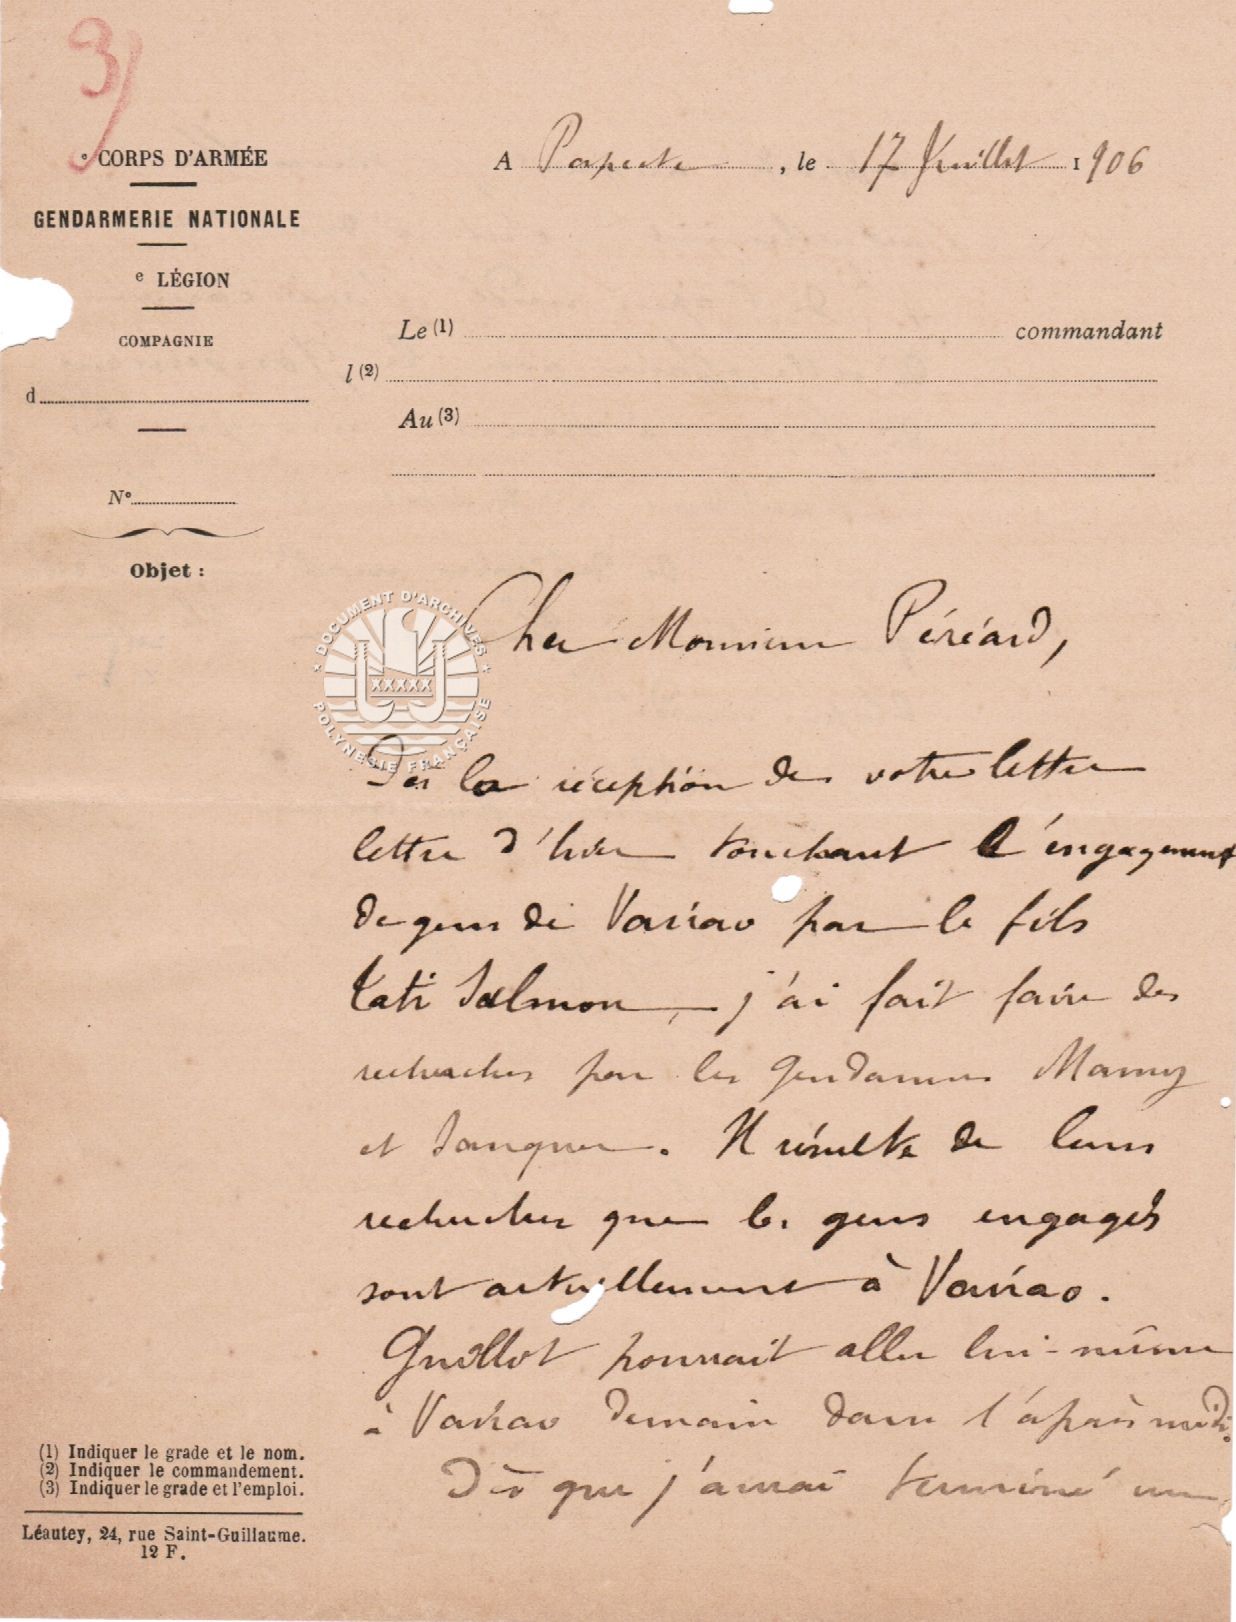 3)
e CORPS D'ARMÉE
GENDARMERIE NATIONALE
e LÉGION
COMPAGNIE
d
N°
Objet :
A Papeete, le 17 Juillet 1906
Le (1) commandant
l (2)
Au (3)
DOCUMENT D'ARCHIVES
POLYNESIE FRANÇAISE
Cher Monsieur Péréard,
Dès la réception de votre lettre
lettre d'hier touchant l'engagement
de gens de Vairao par le fils
Tati Salmon, j'ai fait faire des
recherches par les gendarmes Mamy
et . Il résulte de leurs
recherches que les gens engagés
sont actuellement à Vairao.
Guillot pourrait aller lui-même
à Vairao demain dans l'après midi.
Dès que j'aurai terminé un
(1) Indiquer le grade et le nom.
(2) Indiquer le commandement.
(3) Indiquer le grade et l'emploi.
Léautey, 24, rue Saint-Guillaume.
12 F.